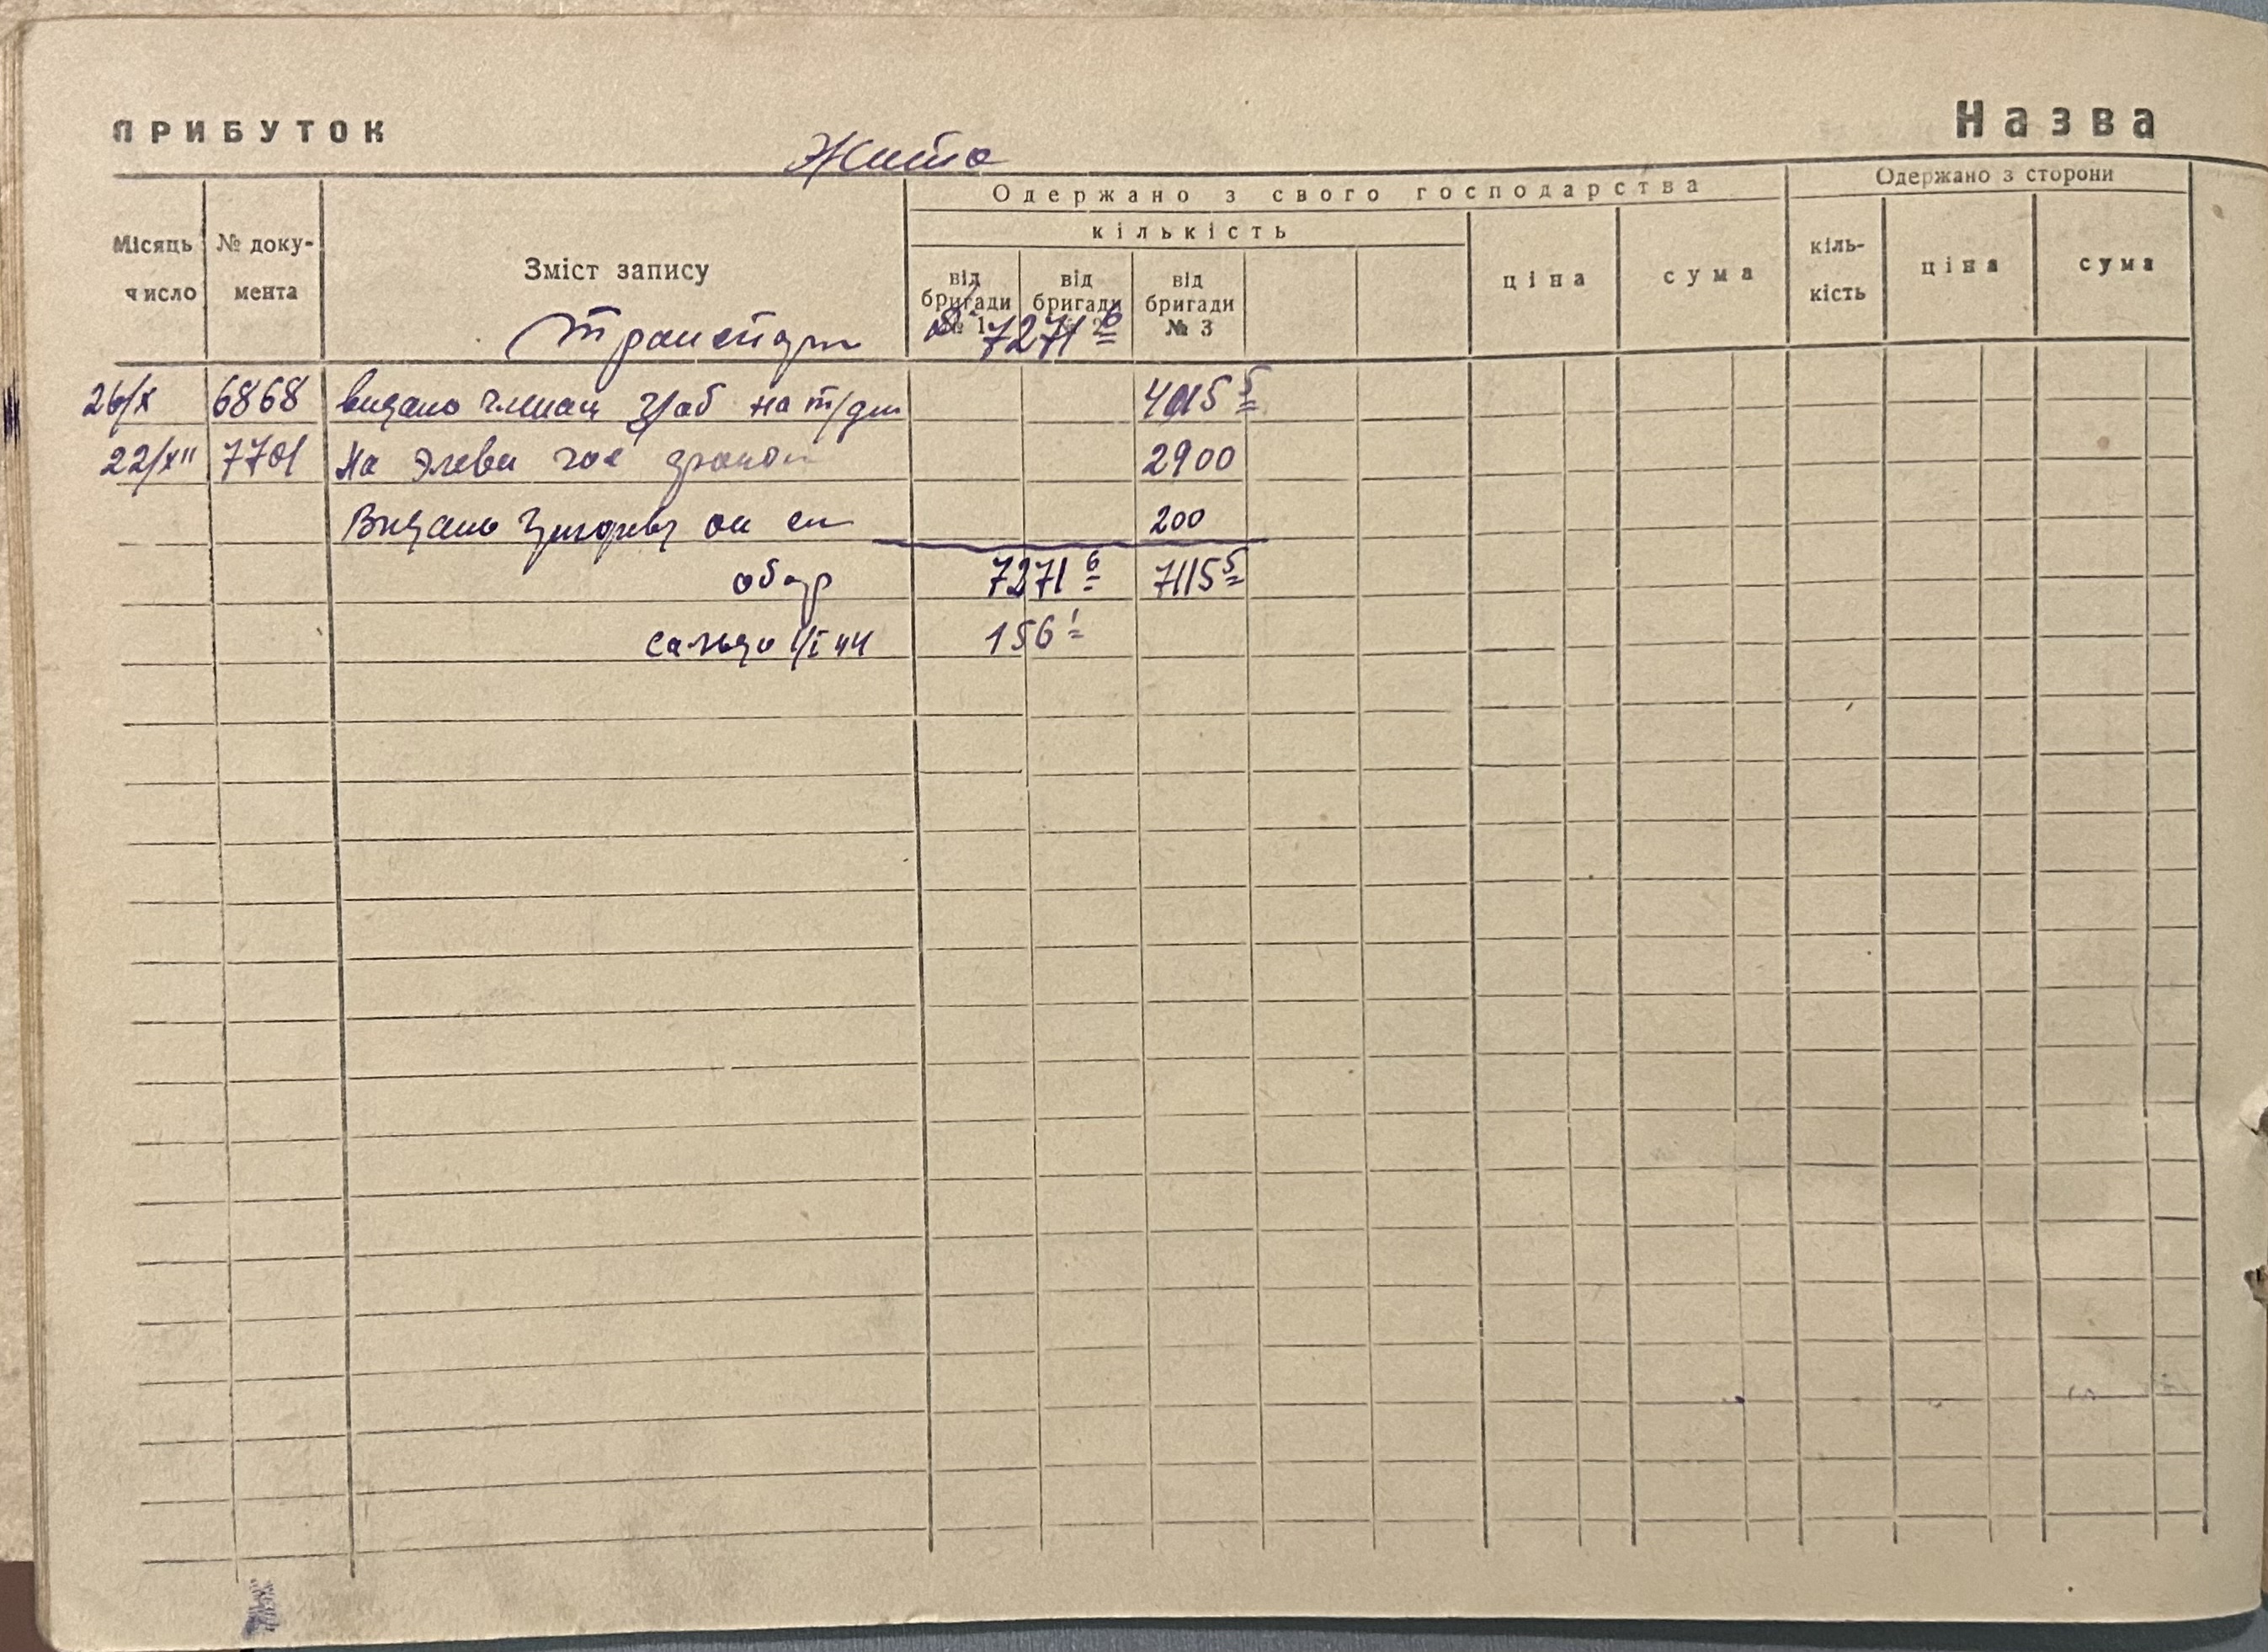 ПРИБУТОК
Назва
Жито
Місяць число
№ документа
Зміст запису
Одержано з свого господарства
Одержано з сторони
кількість
ціна
сума
кількість
ціна
сума
від бригади № 1
від бригади № 2
від бригади № 3
Транспорт 7271 6
26/X 6868 видано членам на т/дні 4015 5
22/XII 7701 На 2900
Видано 200
обор 7271 6 7115 5
сальдо 1/I 44 156 1